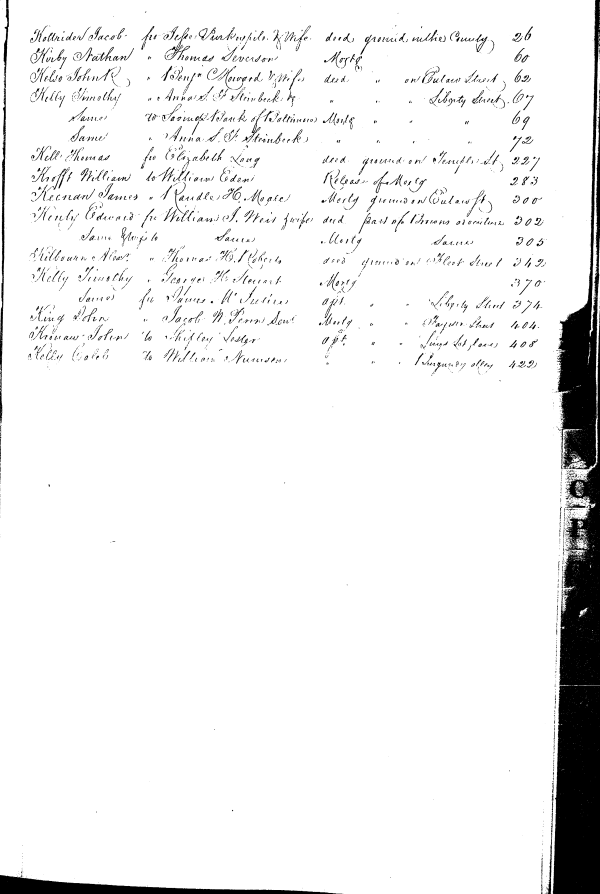 Kottrider Jacob fro Jesse Turkeypile & Wife deed ground in the County 26
Kirby Nathan " Thomas Severson Mortg 60
Kelso John R " Benja C Howard & Wife deed " on Eutaw Street 62
Kelly Timothy " Anna S. F Steinbeck & " " " Liberty Street 67
Same to Savings Bank of Baltimore Mortg " " " 69
Same " Anna S. F. Steinbeck " " " " 72
Kell Thomas fro Elizabeth Long deed ground on Temple St 227
Krofft William to William Eden Release of Mortg 283
Keenan James " Randle H. Moale Mortg ground on Eutaw St 300
Kenly Edward fro William J. Weir & wife deed part of Browns 302
Same & wife to Same Mortg Same 305
Kilbourn " Thomas H. Roberts deed ground on Fleet Street 342
Kelly Timothy " George H Steuart Mortg 370
Same fro James M apt. " " Liberty Street 374
King John " Jacob W. Penn Mortg " " Street 404
John to Shipley Lester apt. " " 408
Kelly Caleb to William Numsen " " " Burgundy alley 422